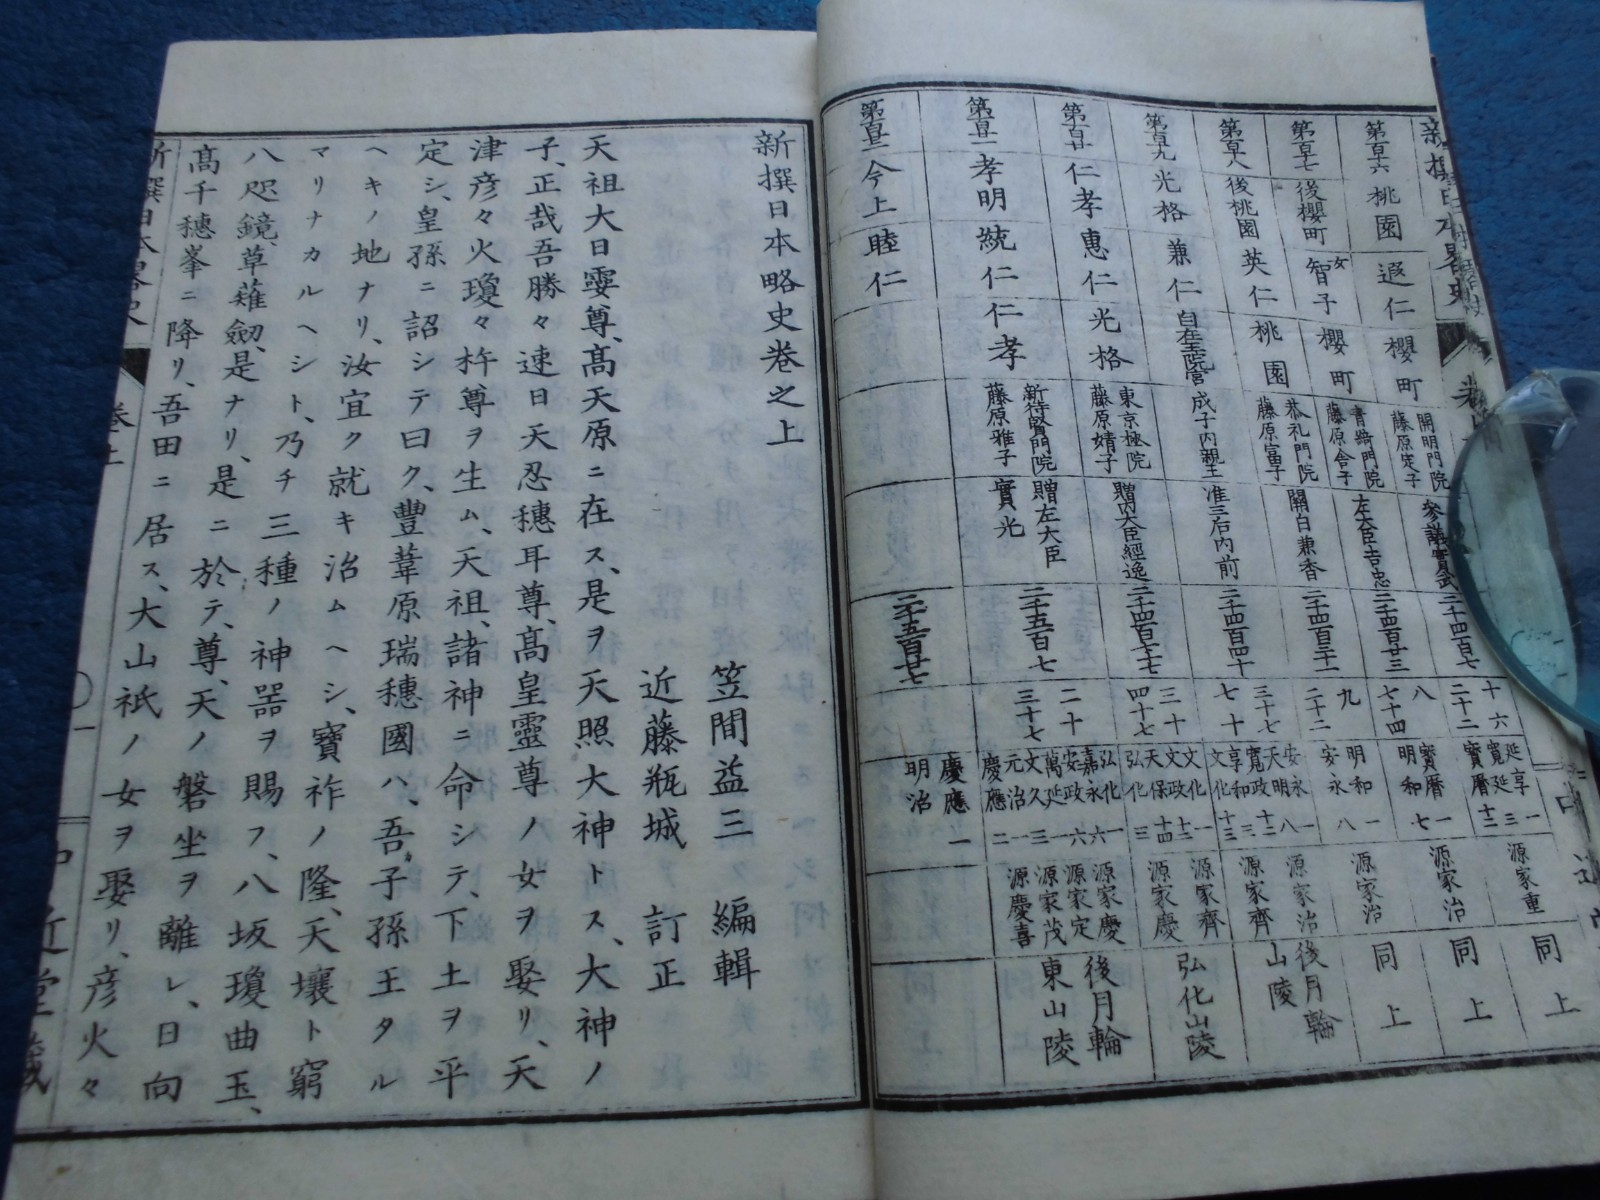 第百十六
桃園
遐仁
櫻町
開明門院
藤原定子
二千四百七
十六
二十二
延享一
寛延三
寶曆十二
源家重
同上
第百十七
後櫻町
女
智子
櫻町
藤原舎子
左大臣吉忠
二千四百廿三
八
七十四
寶曆一
明和七
源家治
同上
第百十八
後桃園
英仁
桃園
恭礼門院
藤原富子
關白兼香
二千四百三十一
九
二十二
明和一
安永八
源家治
同上
第百十九
光格
兼仁
自在王院宮
成子內親王
准三后內前
二千四百四十
三十七
七十
安永八
天明
寛政十二
享和三
文化十三
源家治
源家齊
後月輪
山陵
第百廿
仁孝
惠仁
光格
東京極院
藤原婧子
贈內大臣經逸
二千四百七十七
三十
四十七
文化一
文政十二
天保十四
弘化三
源家齊
源家慶
弘化山陵
第百廿一
孝明
統仁
仁孝
新待賢門院
藤原雅子
贈左大臣
實光
二千五百七
二十
三十七
弘化一
嘉永六
安政六
萬延一
文久三
元治一
慶應二
源家慶
源家定
源家茂
源慶喜
後月輪
東山陵
第百廿二
今上
睦仁
二千五百廿七
慶應一
明治
新撰日本略史卷之上
笠間益三　編輯
近藤瓶城　訂正
天祖大日孁尊、髙天原ニ在ス、是ヲ天照大神トス、大神ノ
子、正哉吾勝々速日天忍穗耳尊、髙皇靈尊ノ女ヲ娶リ、天
津彦々火瓊々杵尊ヲ生ム、天祖、諸神ニ命シテ、下土ヲ平
定シ、皇孫ニ詔シテ曰ク、豐葦原瑞穗國ハ、吾子孫王タル
ヘキノ地ナリ、汝宜ク就キ治ムヘシ、寶祚ノ隆、天壤ト窮
マリナカルヘシト、乃チ三種ノ神器ヲ賜フ、八坂瓊曲玉、
八咫鏡、草薙劔、是ナリ、是ニ於テ、尊、天ノ磐坐ヲ離レ、日向
髙千穗峯ニ降リ、吾田ニ居ス、大山祇ノ女ヲ娶リ、彦火々
新撰日本略史
卷上
一
中近堂藏